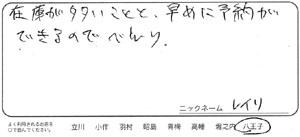 在庫が多いことと、早めに予約が
できるのでべんり。
ニックネーム レイリ
よく利用されるお店を
○で囲んでください。
立川 小作 羽村 昭島 青梅 高幡 堀之内 八王子